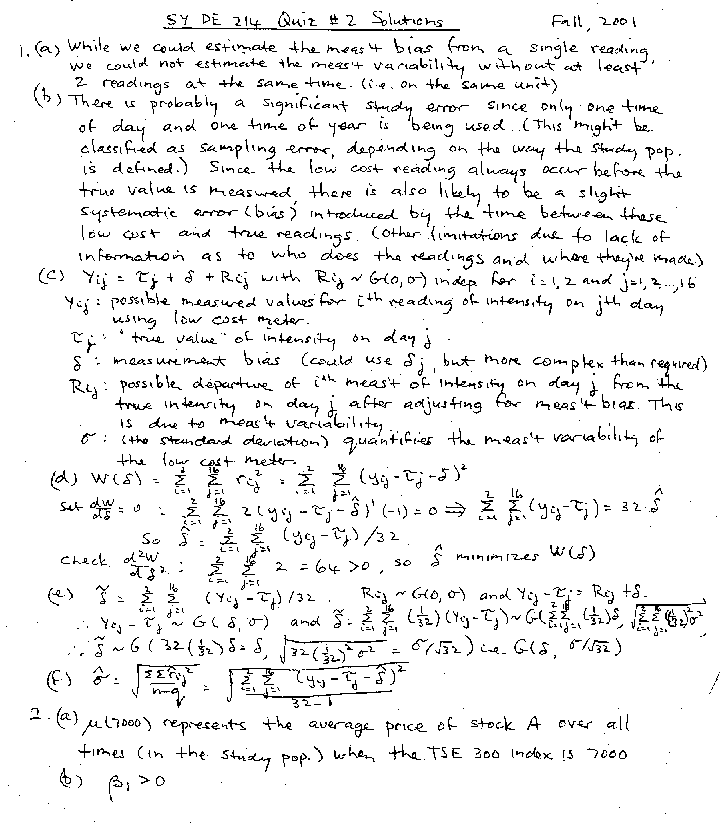 SY DE 214 Quiz #2 Solutions Fall, 2001
1. (a) While we could estimate the meas't bias from a single reading,
we could not estimate the meas't variability without at least
2 readings at the same time. (i.e. on the same unit)
(b) There is probably a significant study error since only one time
of day and one time of year is being used. (This might be
classified as sampling error, depending on the way the study pop.
is defined.) Since the low cost reading always occur before the
true value is measured, there is also likely to be a slight
systematic error (bias) introduced by the time between these
low cost and true readings. (Other limitations due to lack of
information as to who does the readings and where they're made)
(c) Yij = τj + δ + Rij with Rij ~ G(0,σ) indep for i=1,2 and j=1,2,...,16
Yij : possible measured values for ith reading of intensity on jth day
using low cost meter.
τj : "true value" of intensity on day j.
δ : measurement bias (could use δj, but more complex than required)
Rij : possible departure of ith meas't of intensity on day j from the
true intensity on day j after adjusting for meas't bias. This
is due to meas't variability.
σ : (the standard deviation) quantifies the meas't variability of
the low cost meter.
(d) W(δ) = Σ_{i=1}^{2} Σ_{j=1}^{16} rij² = Σ_{i=1}^{2} Σ_{j=1}^{16} (yij - τj - δ)²
Set dW/dδ = 0 : Σ_{i=1}^{2} Σ_{j=1}^{16} 2(yij - τj - δ̂)¹(-1) = 0 ⇒ Σ_{i=1}^{2} Σ_{j=1}^{16} (yij - τj) = 32 δ̂
So δ̂ = Σ_{i=1}^{2} Σ_{j=1}^{16} (yij - τj)/32.
Check d²W/dδ² : Σ_{i=1}^{2} Σ_{j=1}^{16} 2 = 64 > 0, so δ̂ minimizes W(δ)
(e) δ̃ = Σ_{i=1}^{2} Σ_{j=1}^{16} (Yij - τj)/32. Rij ~ G(0,σ) and Yij - τj = Rij + δ.
∴ Yij - τj ~ G(δ,σ) and δ̃ = Σ_{i=1}^{2} Σ_{j=1}^{16} (1/32)(Yij - τj) ~ G(Σ_{i=1}^{2} Σ_{j=1}^{16} (1/32)δ, √(Σ_{i=1}^{2} Σ_{j=1}^{16} (1/32)²σ²))
∴ δ̃ ~ G(32(1/32)δ = δ, √(32(1/32)²σ²) = σ/√32) i.e. G(δ, σ/√32)
(f) σ̂ = √(ΣΣ r̂ij²/(n-q)) = √(Σ_{i=1}^{2} Σ_{j=1}^{16} (yij - τj - δ̂)²/(32-1))
2. (a) μ(7000) represents the average price of stock A over all
times (in the study pop.) when the TSE 300 index is 7000
(b) β₁ > 0